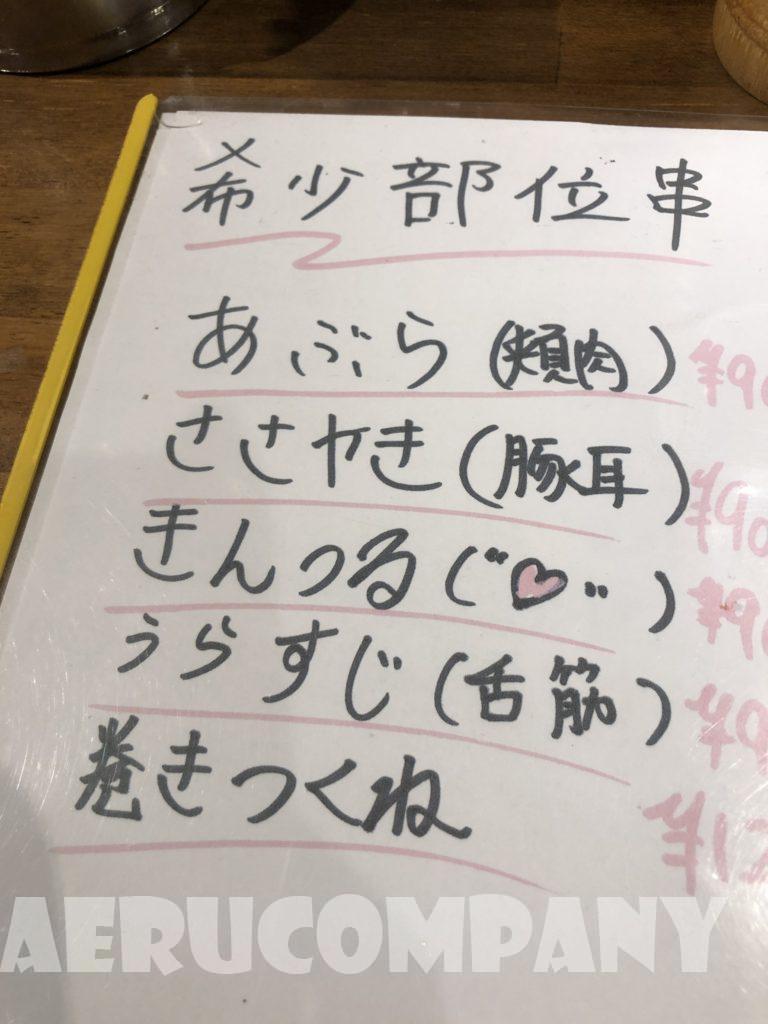 希少部位串
あぶら(頬肉) ¥90
ささやき(豚耳) ¥90
きんつる("♡") ¥90
うらすじ(舌筋) ¥9
巻きつくね ¥1
AERUCOMPANY